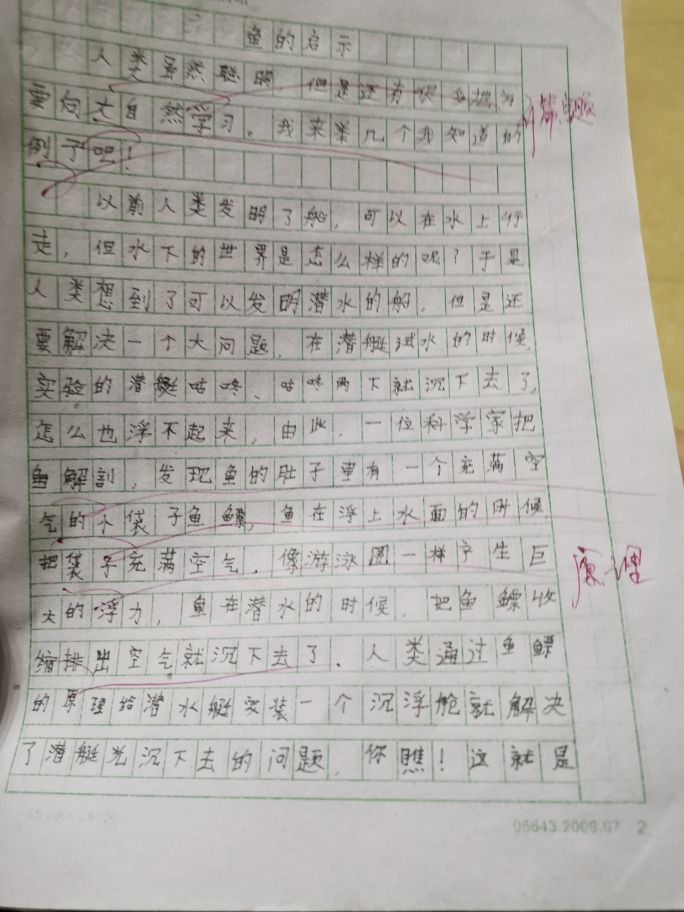 鱼的启示
人类虽然聪明，但是还有很多地方
要向大自然学习。我来举几个我知道的
例子吧！
以前人类发明了船，可以在水上行
走，但水下的世界是怎么样的呢？于是
人类想到了可以发明潜水的船，但是还
要解决一个大问题，在潜艇试水的时候，
实验的潜艇咕咚、咕咚两下就沉下去了，
怎么也浮不起来，由此，一位科学家把
鱼解剖，发现鱼的肚子里有一个充满空
气的小袋子鱼鳔，鱼在浮上水面的时候
把袋子充满空气，像游泳圈一样产生巨
大的浮力，鱼在潜水的时候，把鱼鳔收
缩排出空气就沉下去了．人类通过鱼鳔
的原理给潜水艇安装一个沉浮舱就解决
了潜艇光沉下去的问题，你瞧！这就是
原理
05643.2009.07 2